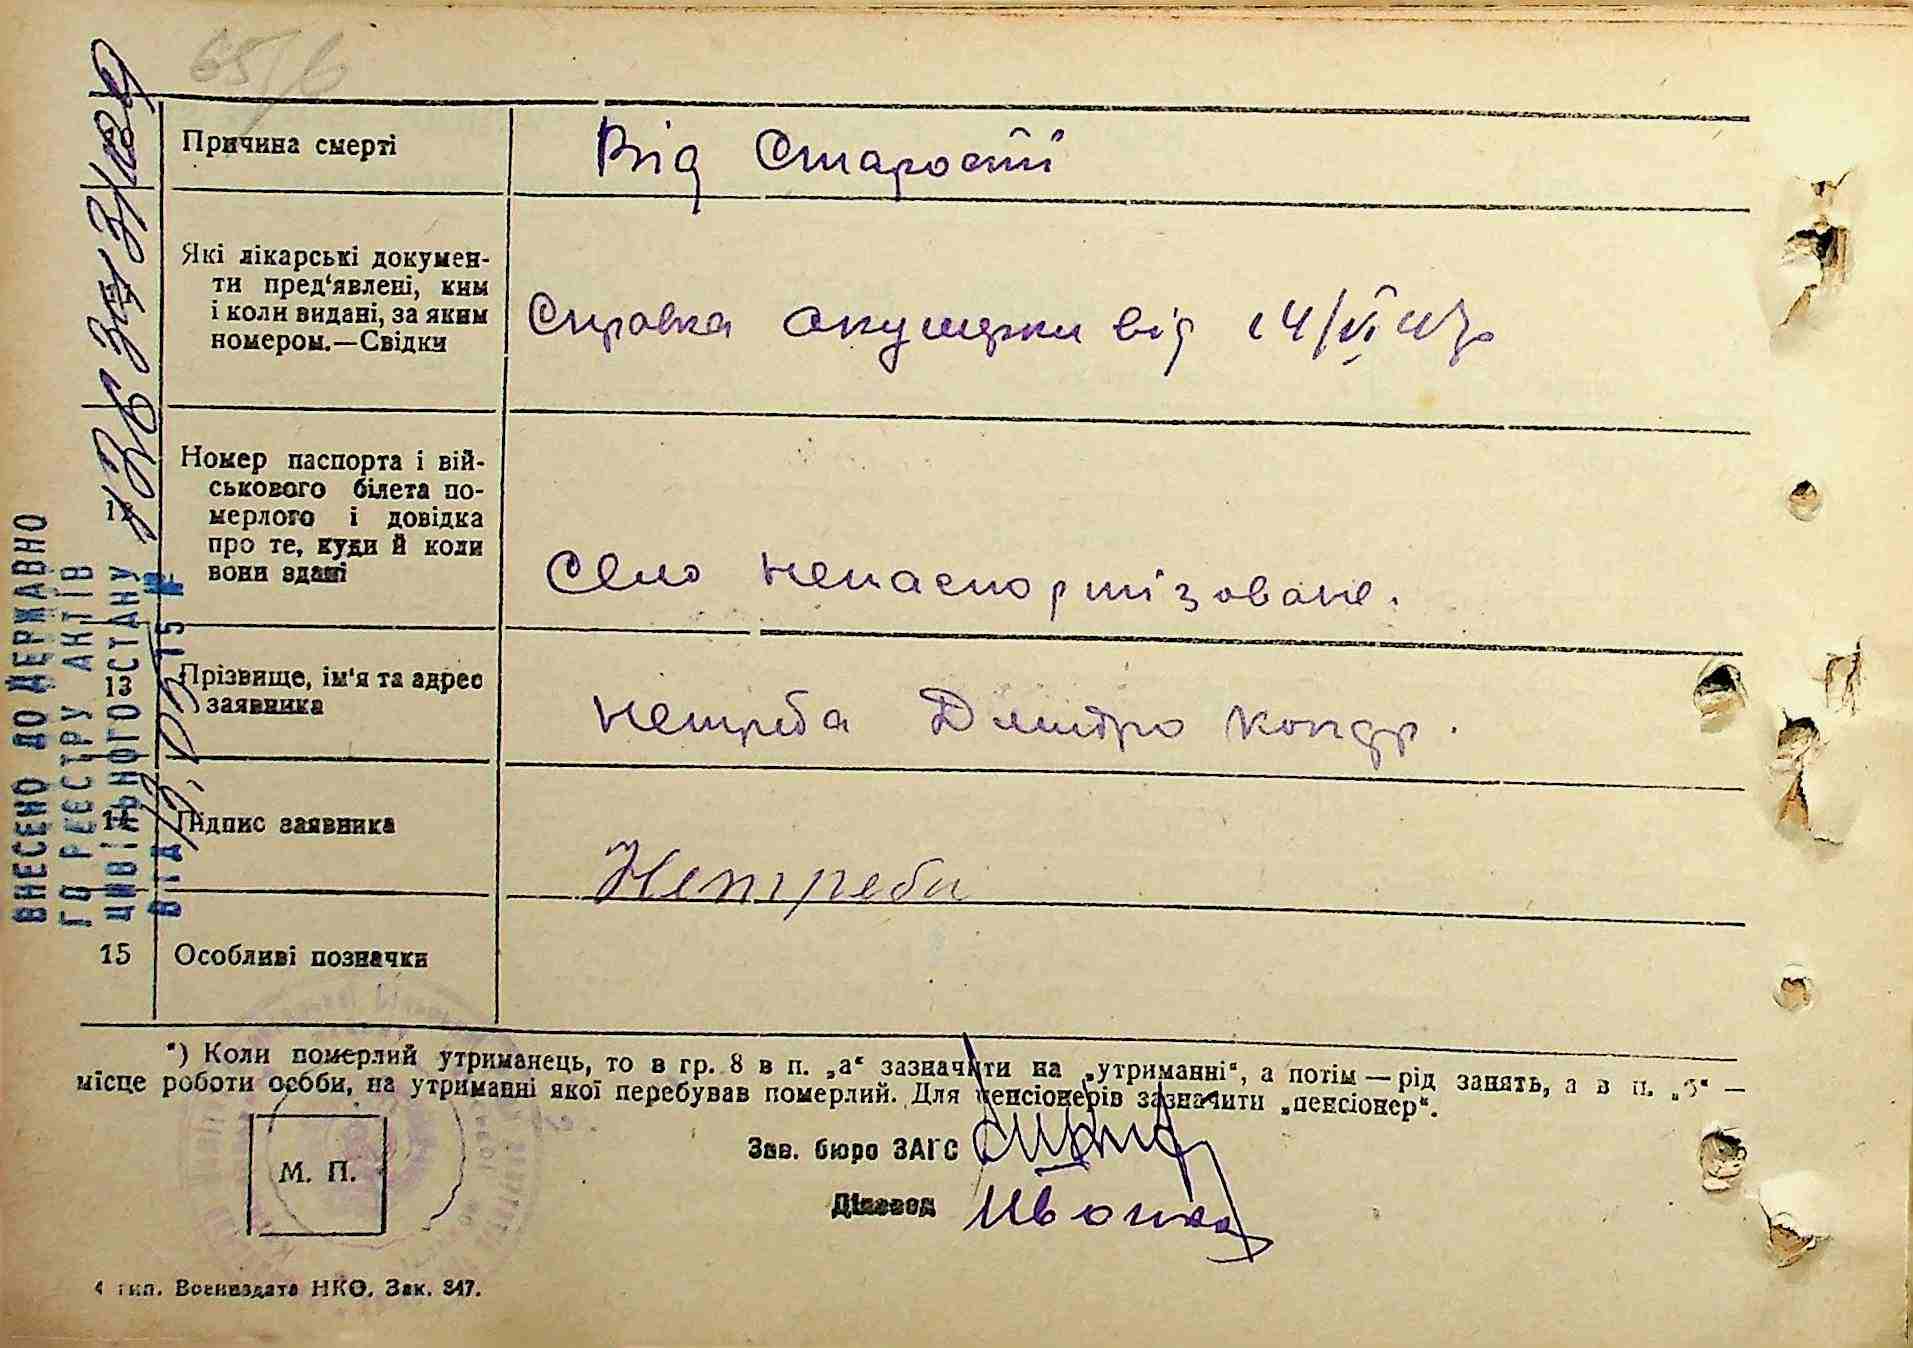 65/6
Причина смерті
Від Старости
Які лікарські докумен-
ти пред‘явлені, ким
і коли видані, за яким
номером.—Свідки
Справка акушерки від 14/VI 47р
Номер паспорта і вій-
ськового білета по-
мерлого і довідка
про те, куди й коли
вони здані
Село непаспортізоване.
13
Прізвище, ім'я та адрес
заявника
Нетреба Дмитро Кондр.
14
Підпис заявника
Нетреба
15
Особливі позначки
ВНЕСЕНО ДО ДЕРЖАВНО
ГО РЕЄСТРУ АКТІВ
ЦИВІЛЬНОГО СТАНУ
ВІД
*) Коли померлий утриманець, то в гр. 8 в п. „а“ зазначити на „утриманні“, а потім — рід занять, а в п. „б“ —
місце роботи особи, на утриманні якої перебував померлий. Для пенсіонерів зазначити „пенсіонер“.
М. П.
Зав. бюро ЗАГС
Діловод
4 тип. Воениздата НКО. Зак. 347.